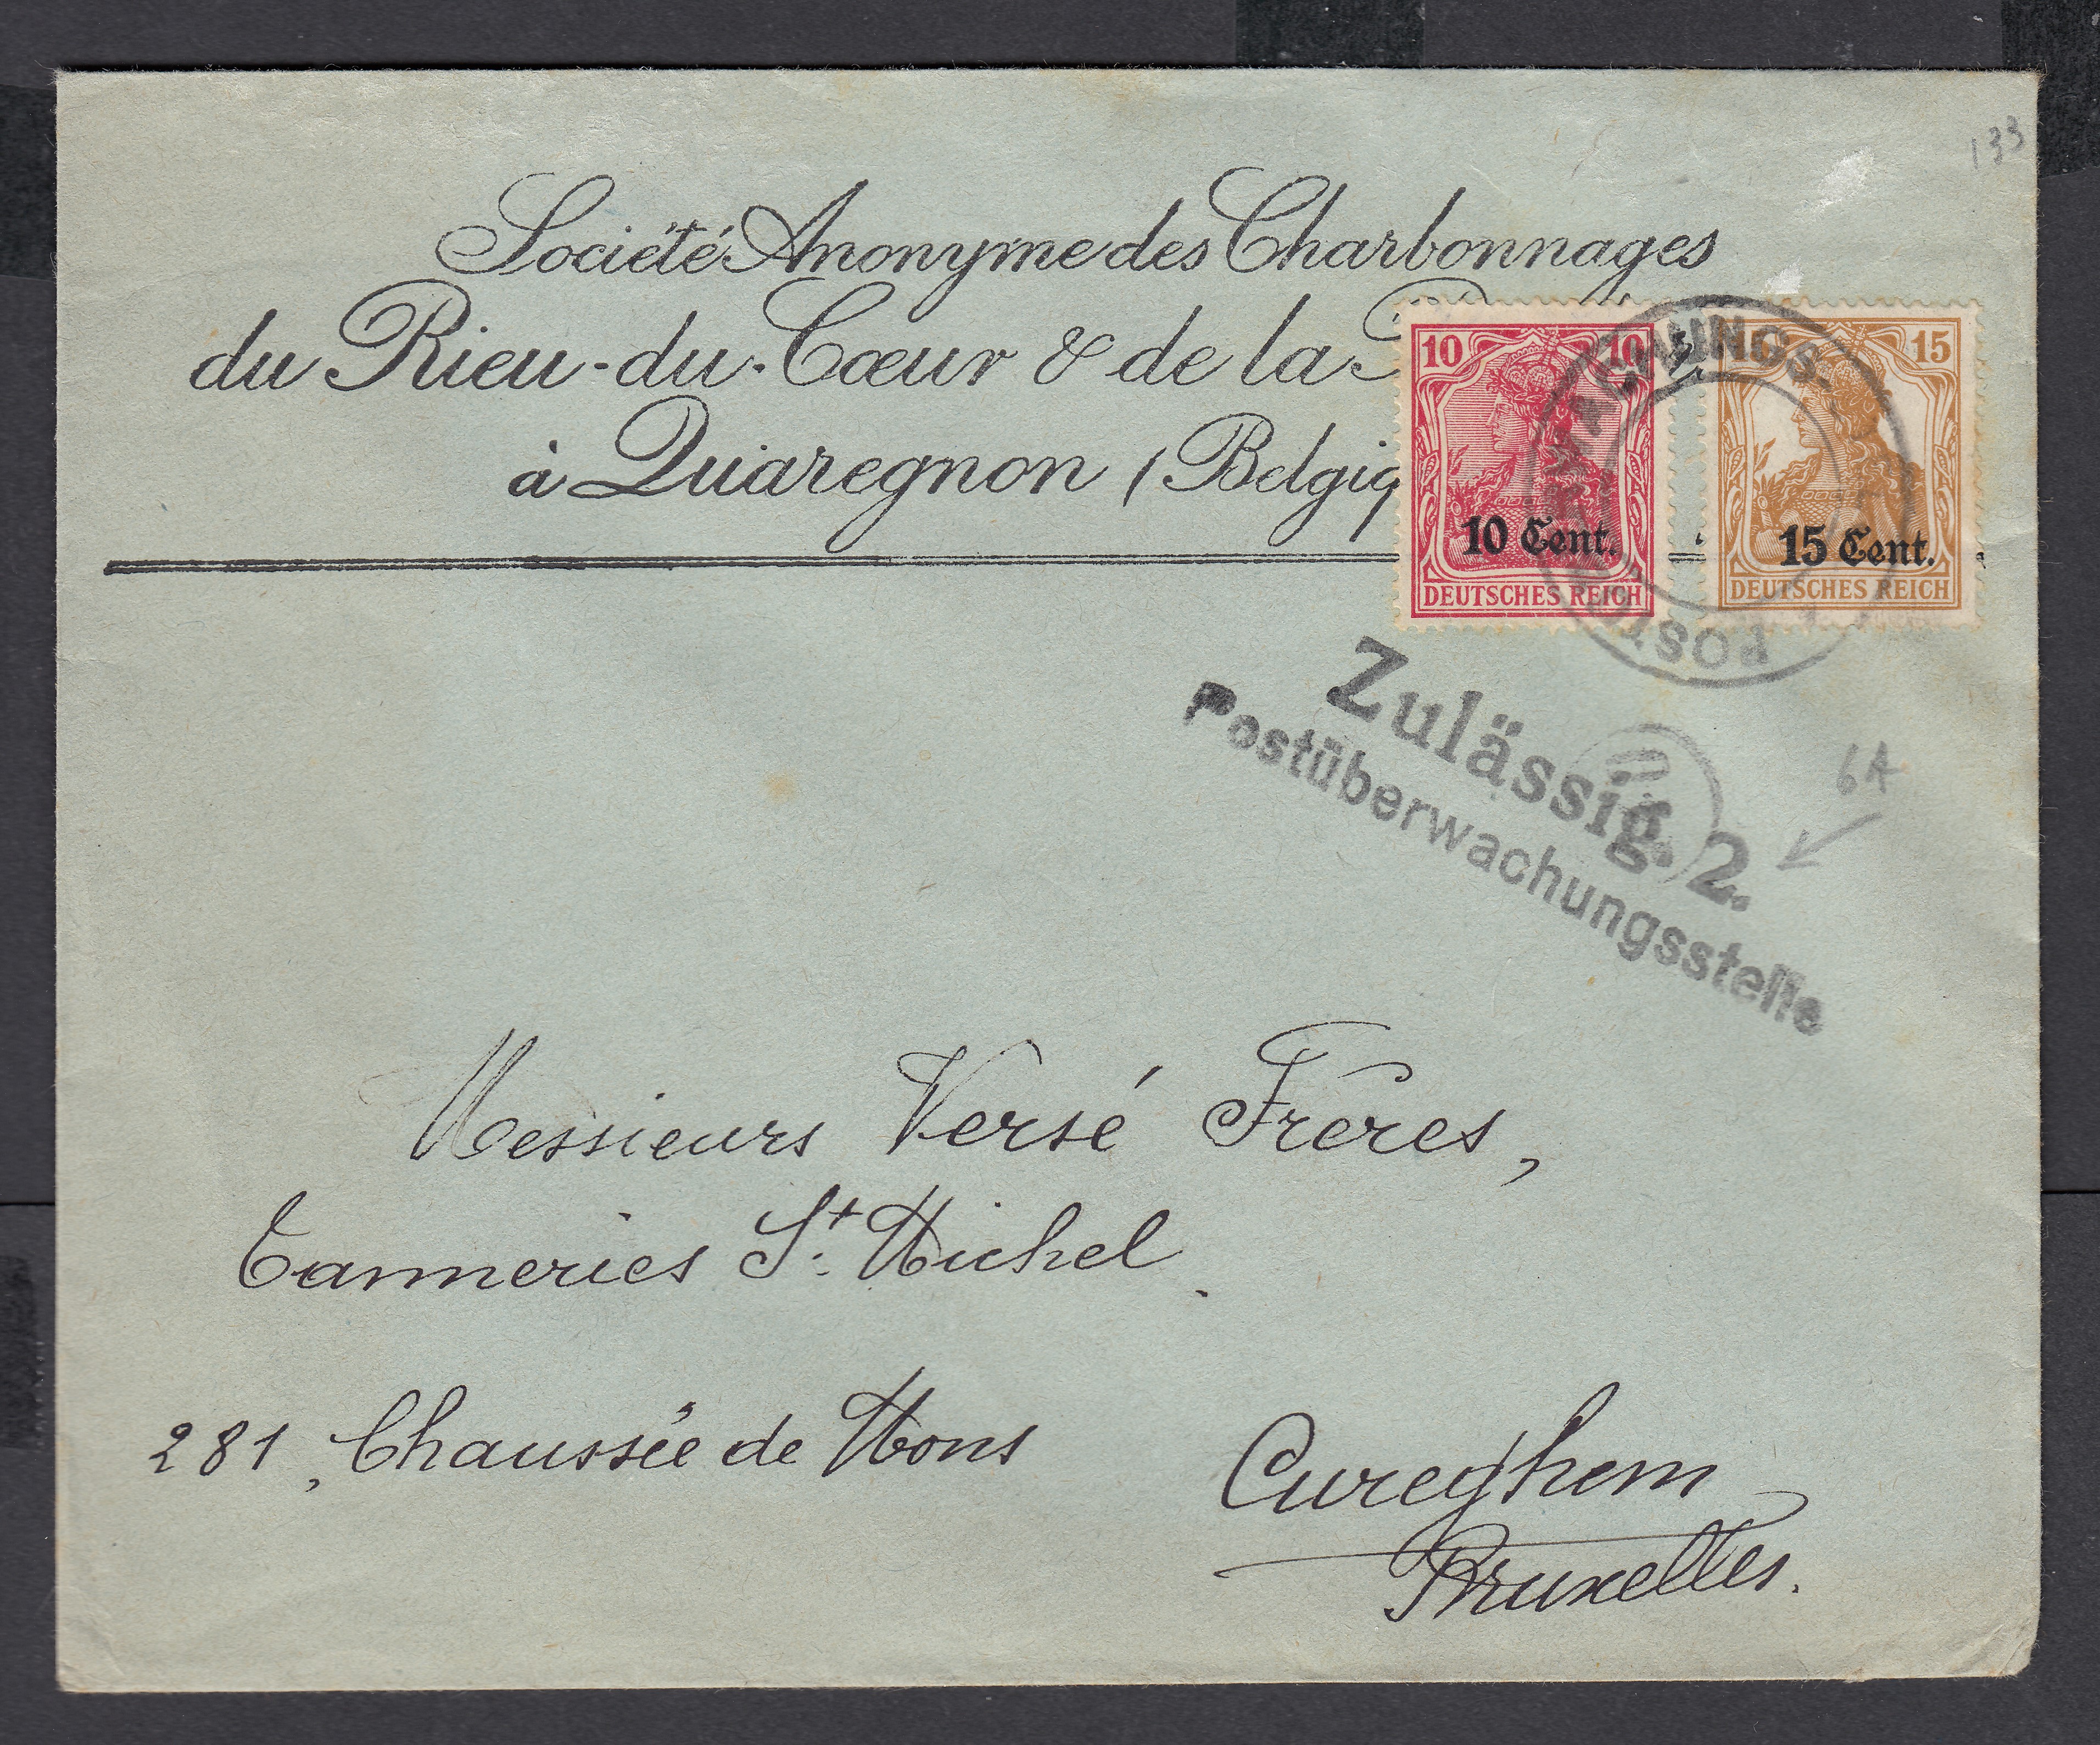 133
Société Anonyme des Charbonnages
du Rieu-du-Cœur & de la
à Quaregnon (Belgiq
10 10
10 Cent.
DEUTSCHES REICH
15
15 Cent.
DEUTSCHES REICH
POST
WACHUNGS.
Zulässig. 2.
Postüberwachungsstelle
6A
Messieurs Versé Frères,
Tanneries St. Michel.
281, Chaussée de Mons
Cureghem
Bruxelles.